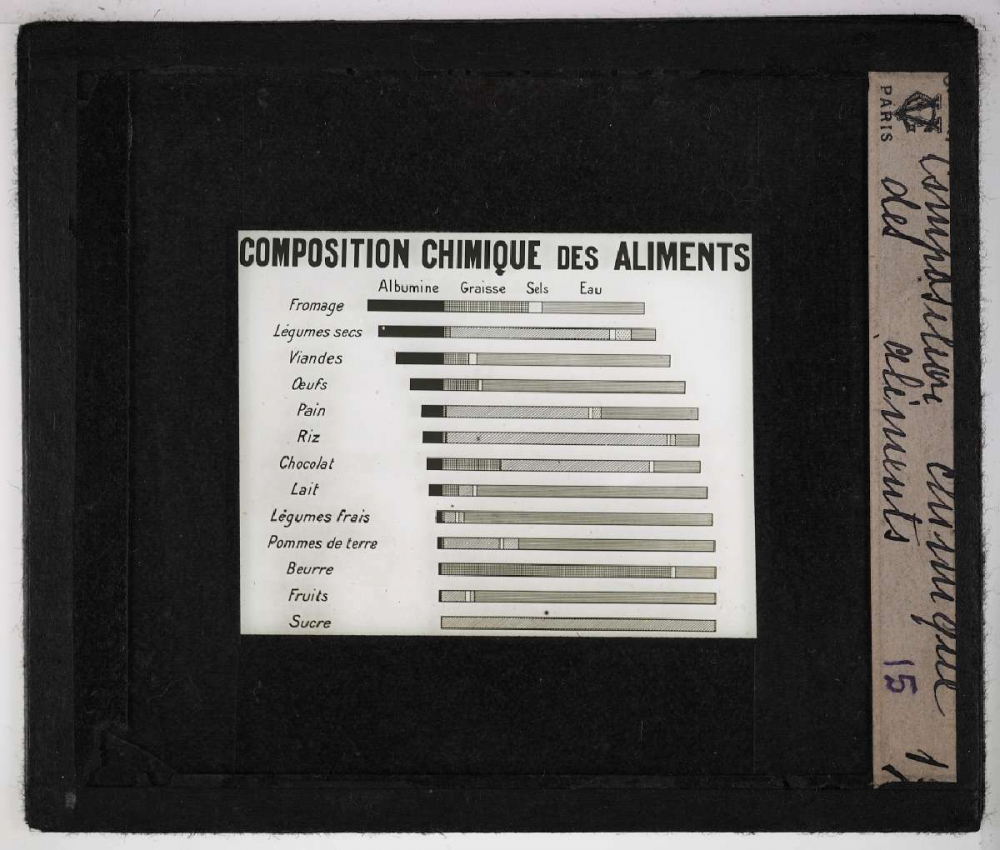 COMPOSITION CHIMIQUE DES ALIMENTS
Albumine Graisse Sels Eau
Fromage
Légumes secs
Viandes
Œufs
Pain
Riz
Chocolat
Lait
Légumes frais
Pommes de terre
Beurre
Fruits
Sucre
PARIS
Composition chimique
des aliments 15